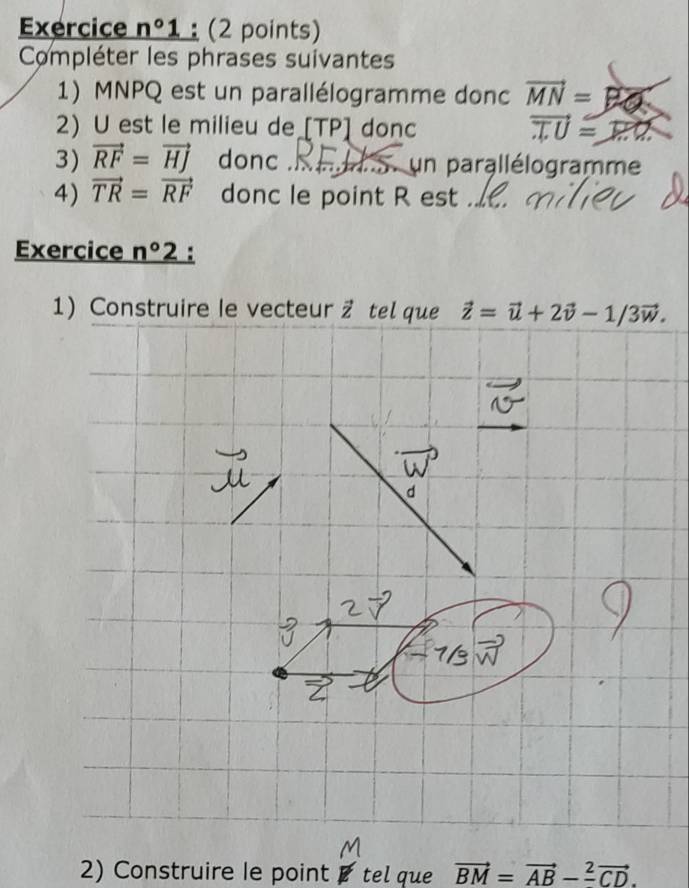 Exercice n°1 : (2 points)
Compléter les phrases suivantes
1) MNPQ est un parallélogramme donc MN⃗ = PQ
2) U est le milieu de [TP] donc TU⃗ =
3) RF⃗ = HJ⃗ donc ............ un parallélogramme
4) TR⃗ = RF⃗ donc le point R est ..le. milieu
Exercice n°2 :
1) Construire le vecteur z⃗ tel que z⃗ = u⃗ + 2v⃗ − 1/3w⃗.
v⃗
w⃗
u⃗
2v⃗
-1/3 w⃗
z⃗
M
2) Construire le point tel que BM⃗ = AB⃗ − 2 CD⃗.